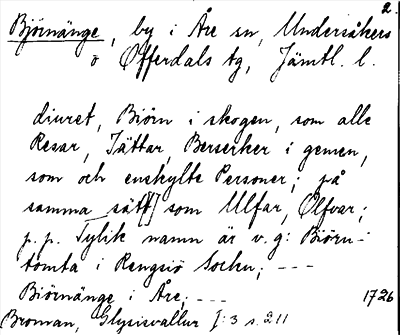 2.
Björnänge, by i Åre sn, Undersåkers
o Offerdals tg, Jämtl. l.
diuret, Biörn i skogen, som alle
Resar, Jättar, Berserker i gemen,
som och enskylte Personer; på
samma sätt[] som Ulfar, Ölfvar;
p. p. Sylik namn är v. g: Biörn-
tomta i Rengsiö Sochn; ---
Biörnänge i Åre; --- 1726
Broman, Glysisvallur I:3 s. 211